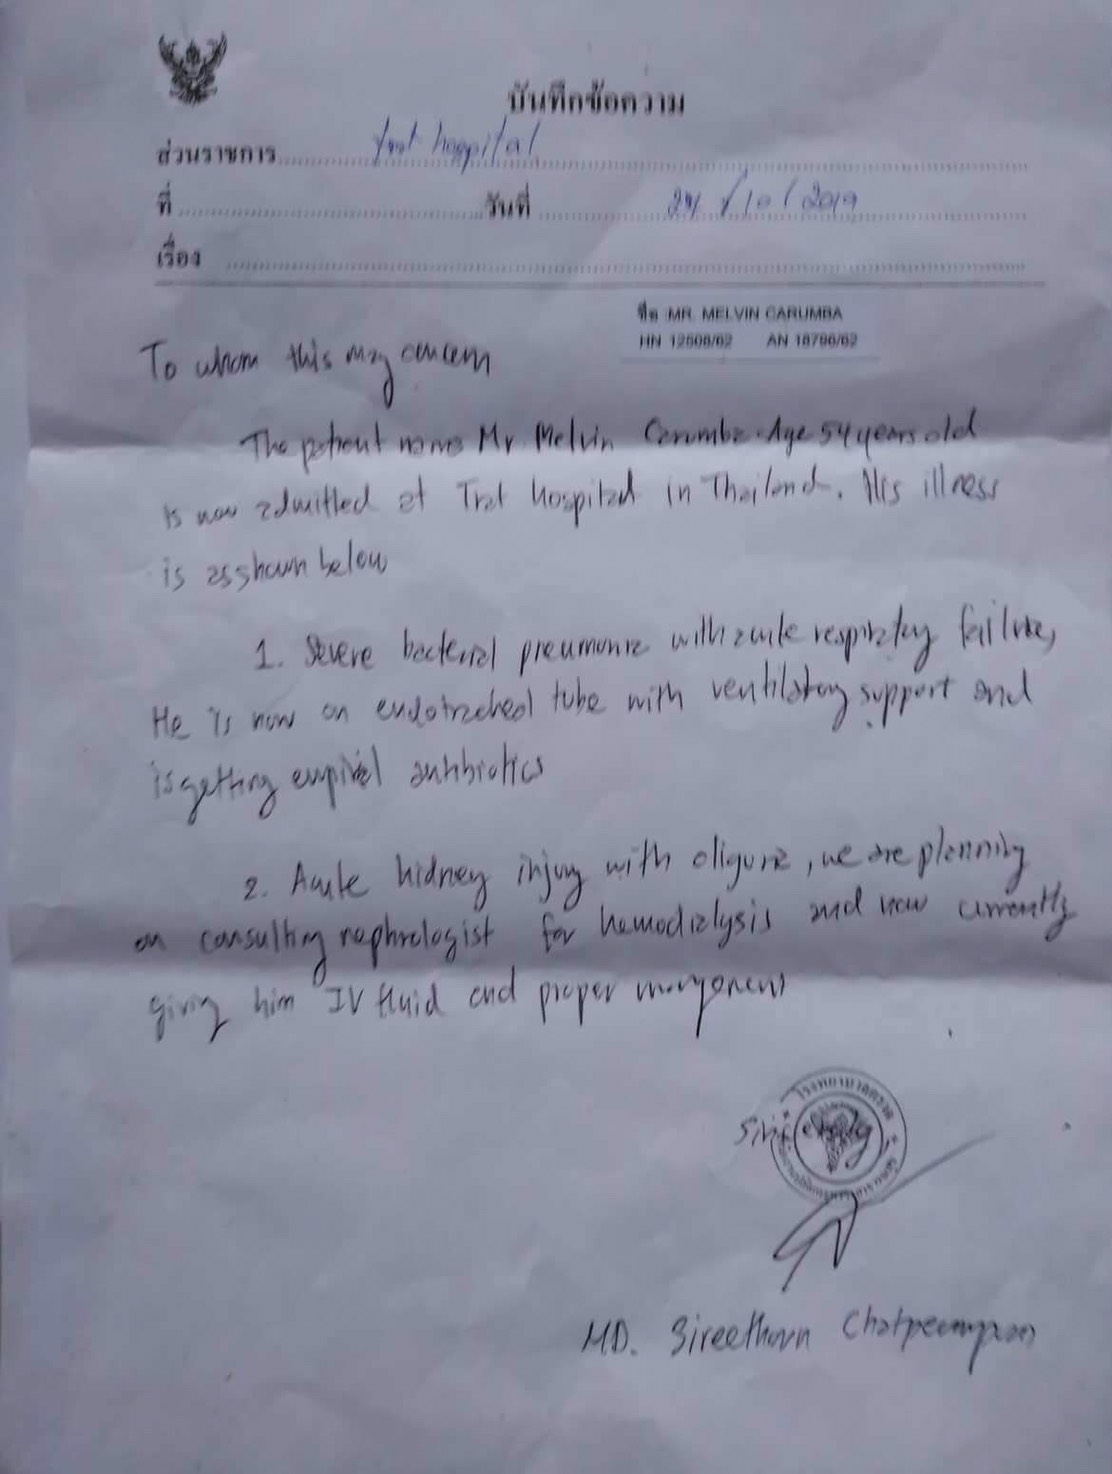 บันทึกข้อความ
ส่วนราชการ Trat hospital
ที่ วันที่ 24/10/2019
เรื่อง
ชื่อ MR. MELVIN CARUMBA
HN 12508/62 AN 18796/62
To whom this may concern
The patient name Mr Melvin Carumba Age 54 years old
is now admitted at Trat hospital in Thailand. His illness
is as shown below
1. Severe bacterial pneumonia with acute respiratory failure,
He is now on endotracheal tube with ventilatory support and
is getting empirical antibiotics
2. Acute kidney injury with oliguria, we are planning
on consulting nephrologist for hemodialysis and now currently
giving him IV fluid and proper management
โรงพยาบาลตราด
MD. Sireethorn